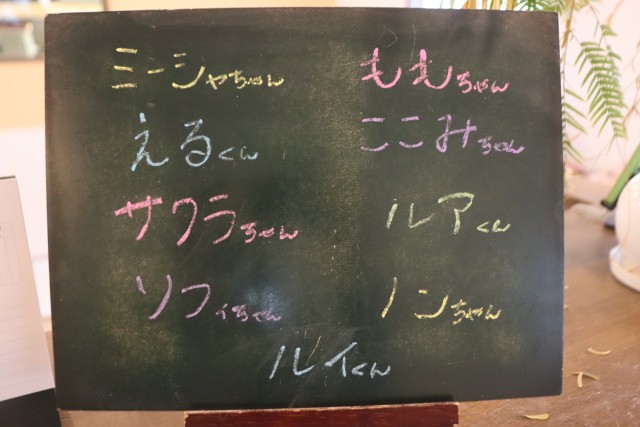 ミーシャちゃん
ももちゃん
えるくん
ここみちゃん
サクラちゃん
ルアくん
ソフィちゃん
ノンちゃん
ルイくん